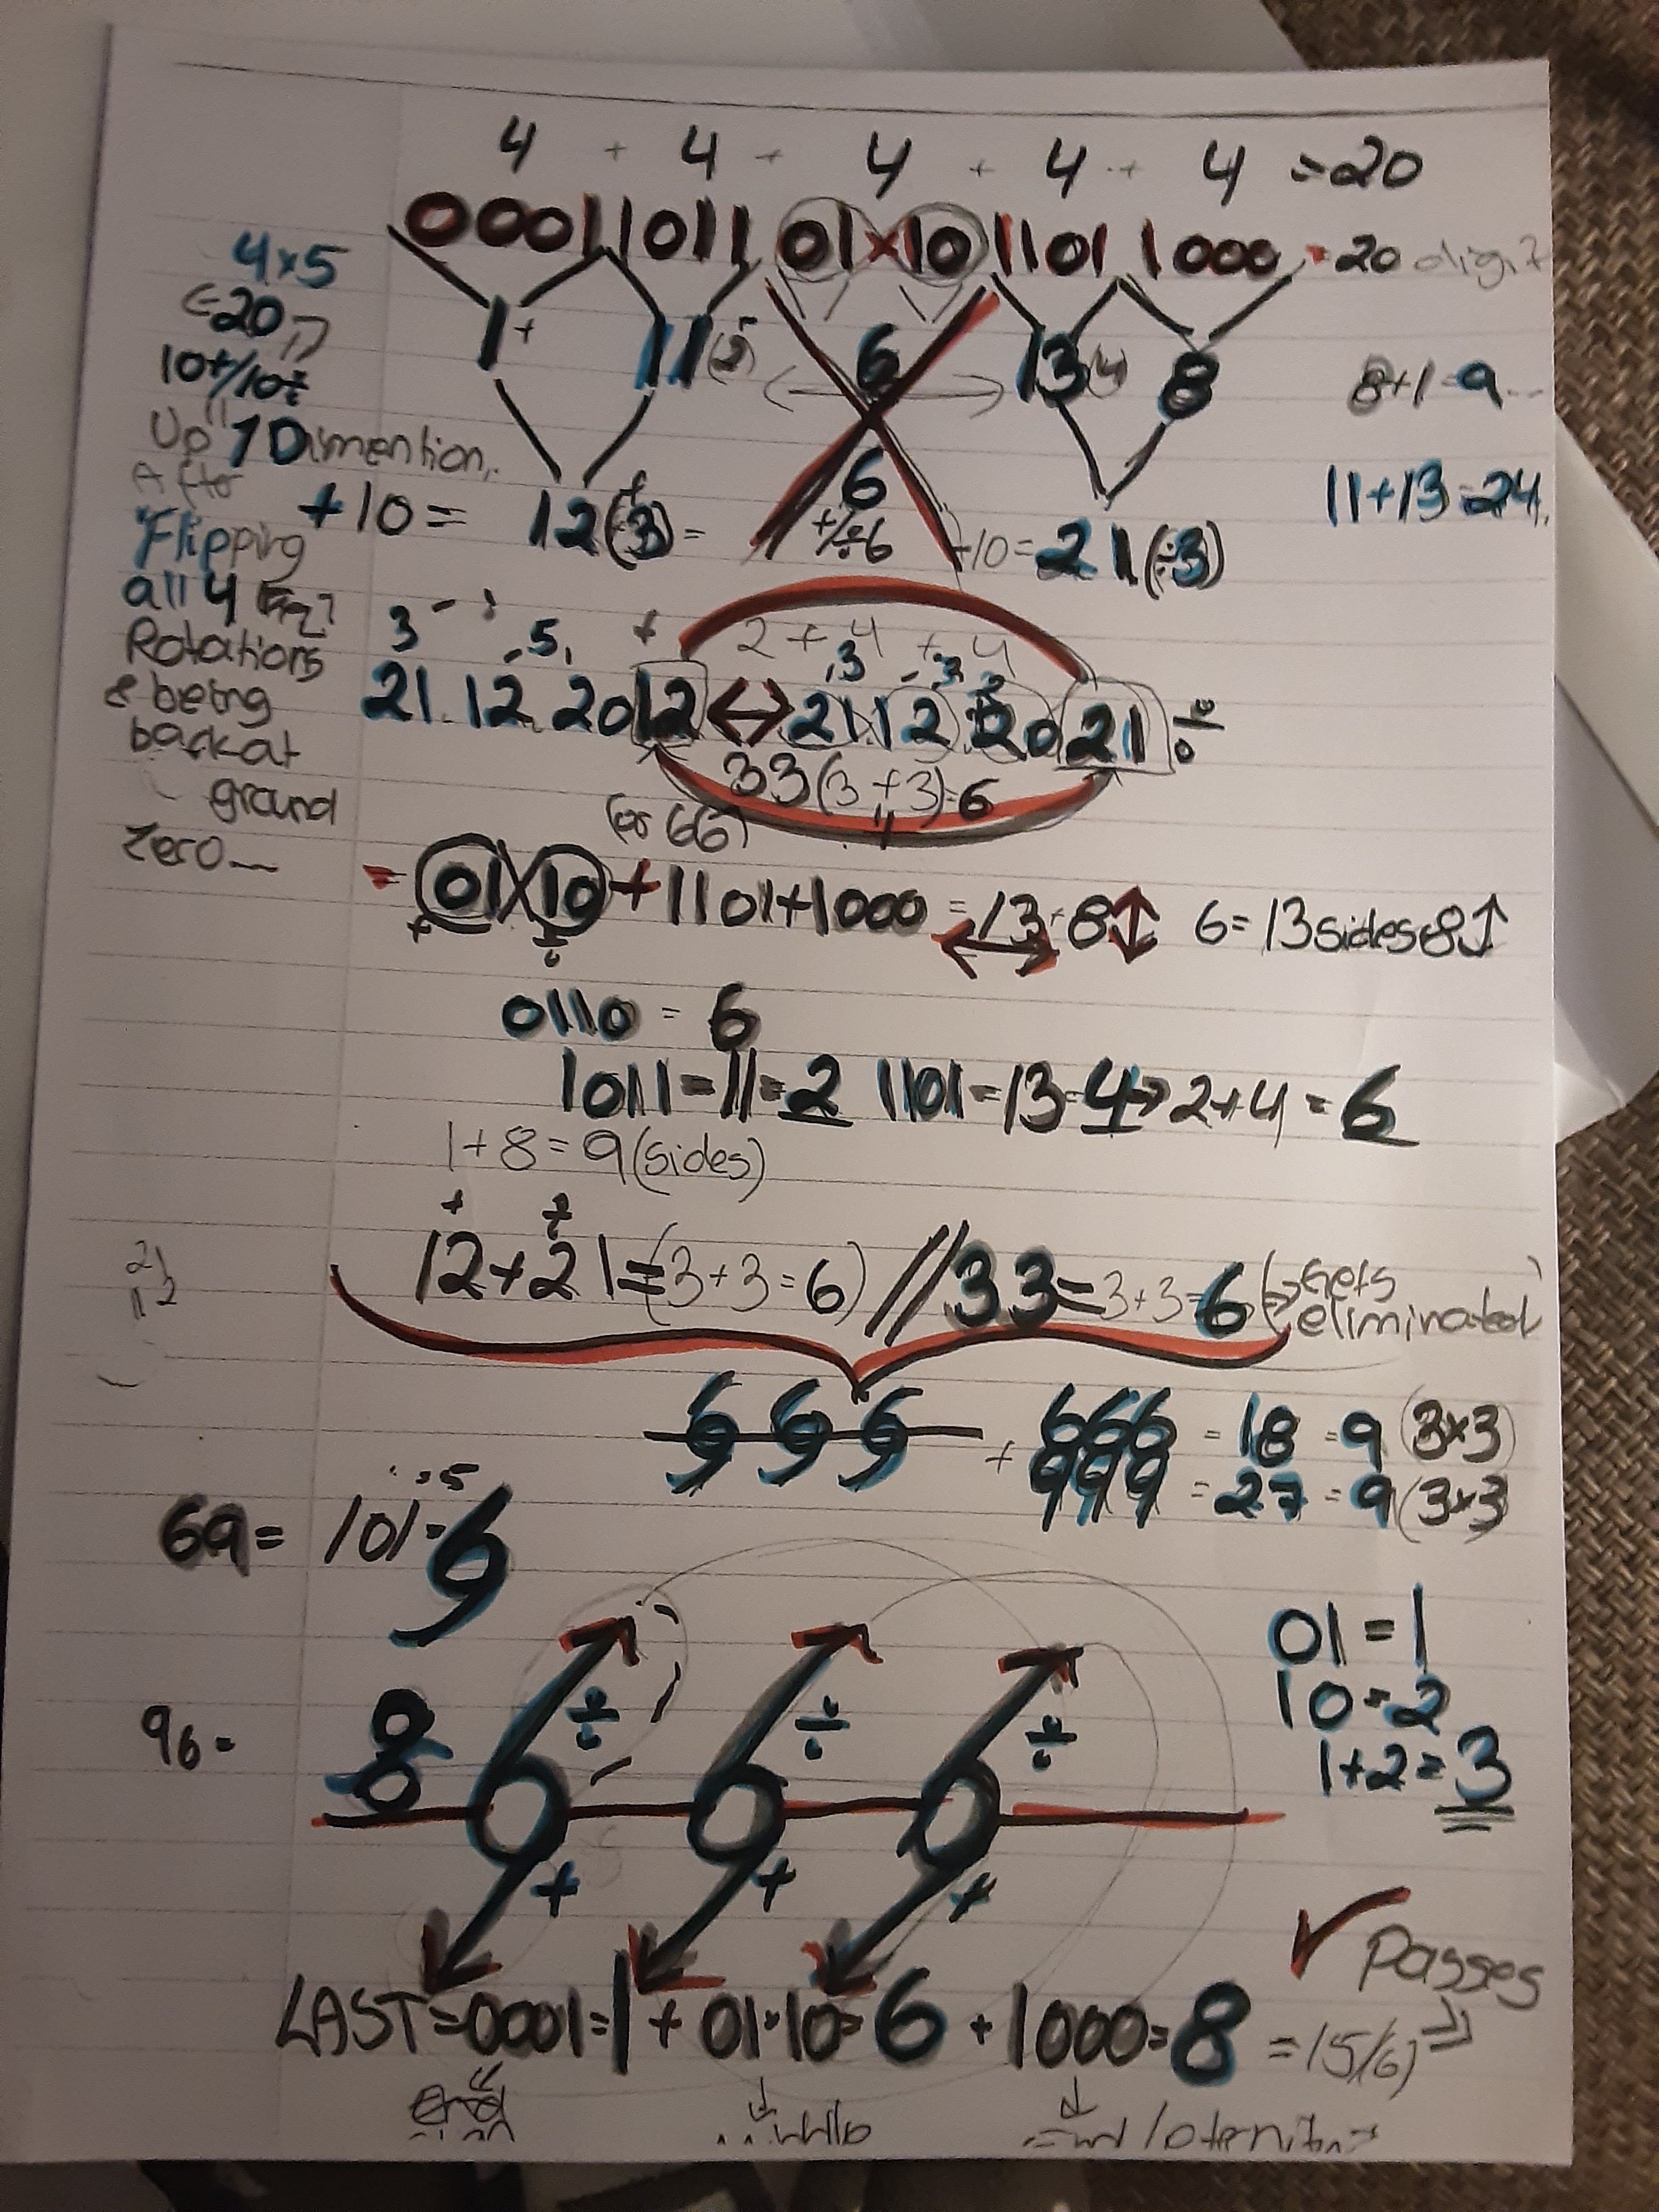 4 + 4 + 4 + 4 + 4 = 20
0001 1011 01x10 1101 1000 = 20 digit
4x5
=20
10+/10÷
Up 1 Dimention,
After
"Flipping
all 4
Rotations
& being
back at
ground
Zero
1 + 11 (2) 6 13 (4) 8
8+1=9...
11+13=24.
+10 = 12(÷3) = 6 +/÷6 +10 = 21(÷3)
3 5 + 2 + 4 + 4
3 3
21.12.2012 ↔ 21.12.2021 ÷
33(3+3)=6
(or 66)
= 01X10 + 1101+1000 = 13+8↕ 6=13sides&8↑
+ ÷
0110 = 6
1011=11=2 1101=13=4→2+4=6
1+8=9(sides)
+ ÷
12+21=(3+3=6) // 33=3+3=6(→Gets
eliminated)
21
12
666 + 666 = 18 = 9 (3x3)
999 = 27 = 9 (3x3)
69= 101=
5
01=1
10=2
1+2=3
96= 8
÷ ÷ ÷
+ + +
✓ Passes
LAST=0001=1 + 01·10=6 + 1000=8 =15(6)